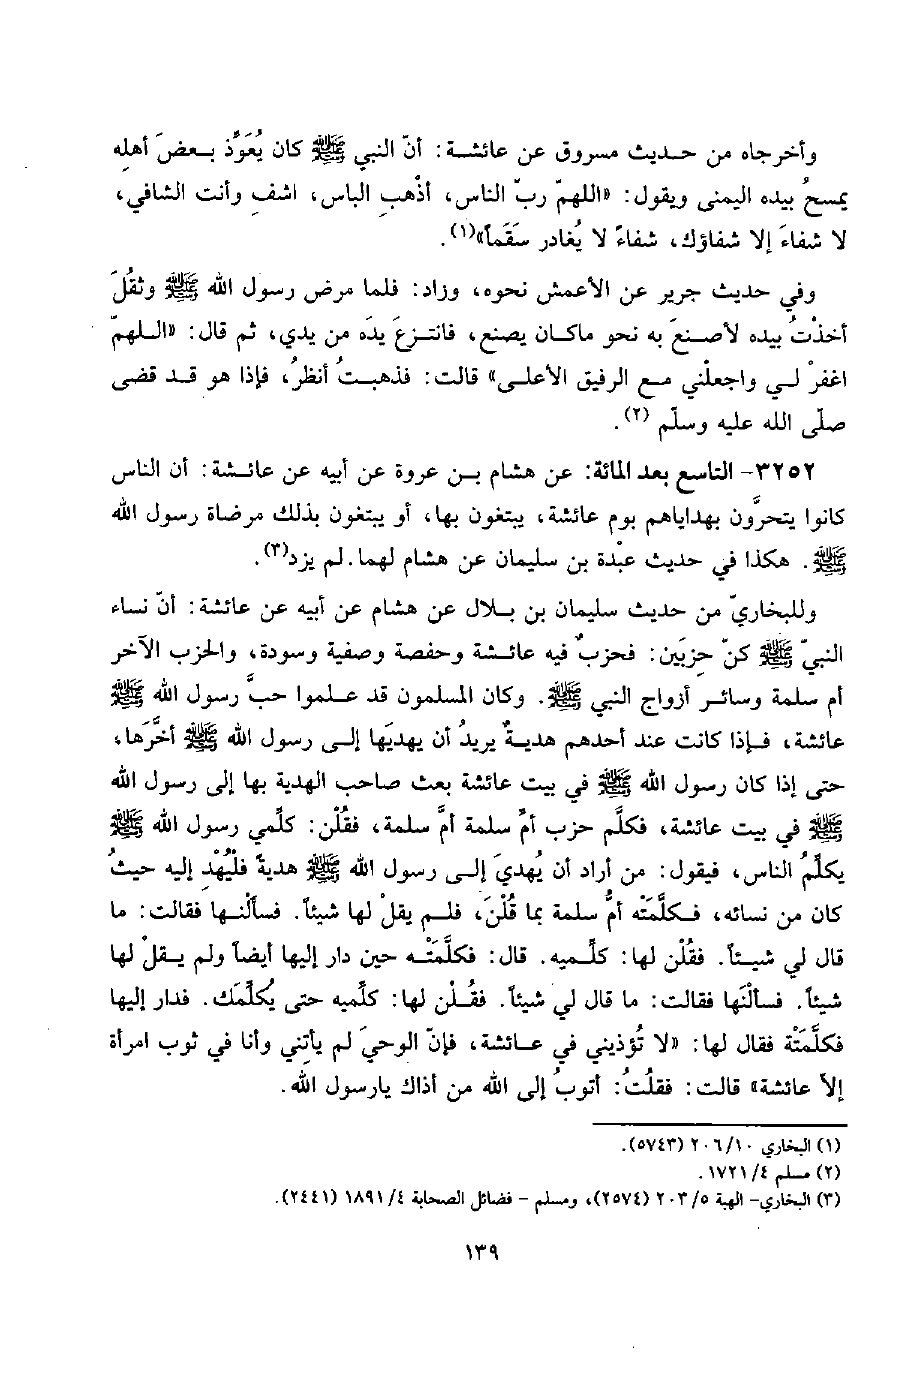 وأخرجاه من حـديث مسروق عن عائشـة: أنّ النبي ﷺ كان يُعَوِّذُ بـعضَ أهلِه
يمسحُ بيده اليمنى ويقول: «اللهمّ ربّ الناس، أذْهبِ الباس، اشفِ وأنت الشافي،
لا شفاءَ إلا شفاؤك، شفاءً لا يُغادر سَقَماً»(١).
وفي حديث جرير عن الأعمش نحوه، وزاد: فلما مرض رسول الله ﷺ وثقُلَ
أخذْتُ بيده لأصـنعَ به نحو ماكـان يصنع، فانتـزعَ يدَه من يدي، ثم قال: «اللـهمّ
اغفرْ لـي واجعلْني مـع الرفيق الأعلـى» قالت: فذهبـتُ أنظرُ، فإذا هو قـد قضى
صلّى الله عليه وسلّم (٢).
٣٢٥٢- التاسع بعد المائة: عن هشام بـن عروة عن أبيه عن عائـشة: أن الناس
كانوا يتحرَّون بهداياهم يوم عائشة، يبتغون بها، أو يبتغون بذلك مرضاة رسول الله
ﷺ. هكذا في حديث عبْدة بن سليمان عن هشام لهما. لم يزد(٣).
وللبخاريّ من حديث سليمان بن بـلال عن هشام عن أبيه عن عائشة: أنّ نساء
النبيّ ﷺ كنّ حِزبَين: فحزبٌ فيه عائـشة وحفصة وصفية وسودة، والحزب الآخر
أم سلمة وسائـر أزواج النبي ﷺ. وكان المسلمون قد عـلموا حبَّ رسول الله ﷺ
عائشة، فـإذا كانت عند أحدهم هديـةٌ يريدُ أن يهديَها إلـى رسول الله ﷺ أخَّرَها،
حتى إذا كان رسول الله ﷺ في بيت عائشة بعث صاحب الهدية بها إلى رسول الله
ﷺ في بيت عائشة، فكلَّم حزب أمِّ سلمة أمَّ سلمة، فقُلْن: كلِّمي رسول الله ﷺ
يكلِّمُ الناس، فيقول: من أراد أن يُهديَ إلـى رسول الله ﷺ هديةً فلْيُهْدِ إليه حيثُ
كان من نسائه، فـكلَّمَتْه أمُّ سلمة بما قُلْنَ، فلـم يقلْ لها شيئاً. فسألْنـها فقالت: ما
قال لي شيـئاً. فقُلْن لها: كلِّـميه. قال: فكلَّمَتْـه حين دار إليها أيضاً ولم يـقلْ لها
شيئاً. فسألْنَها فقالت: ما قال لي شيئاً. فقُـلْن لها: كلِّميه حتى يُكلِّمَك. فدار إليها
فكلَّمَتْه فقال لها: «لا تُؤذيني في عـائشة، فإنّ الوحيَ لم يأتِني وأنا في ثوب امرأة
إلاّ عائشة» قالت: فقلتُ: أتوبُ إلى الله من أذاك يارسول الله.
(١) البخاري ٢٠٦/١٠ (٥٧٤٣).
(٢) مسلم ١٧٢١/٤.
(٣) البخاري- الهبة ٢٠٣/٥ (٢٥٧٤)، ومسلم - فضائل الصحابة ١٨٩١/٤ (٢٤٤١).
١٣٩